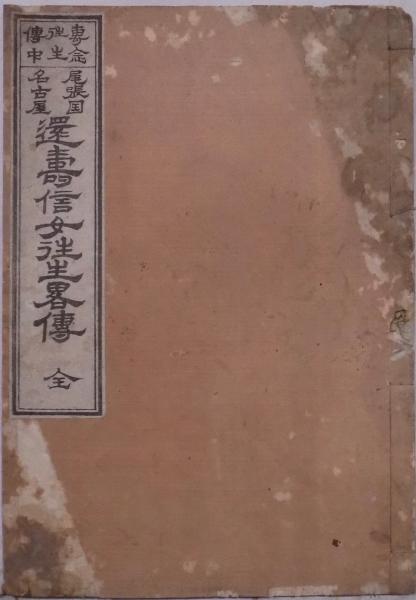 專念
徃生
傳中
尾張国
名古屋
還壽信女徃生畧傳
全